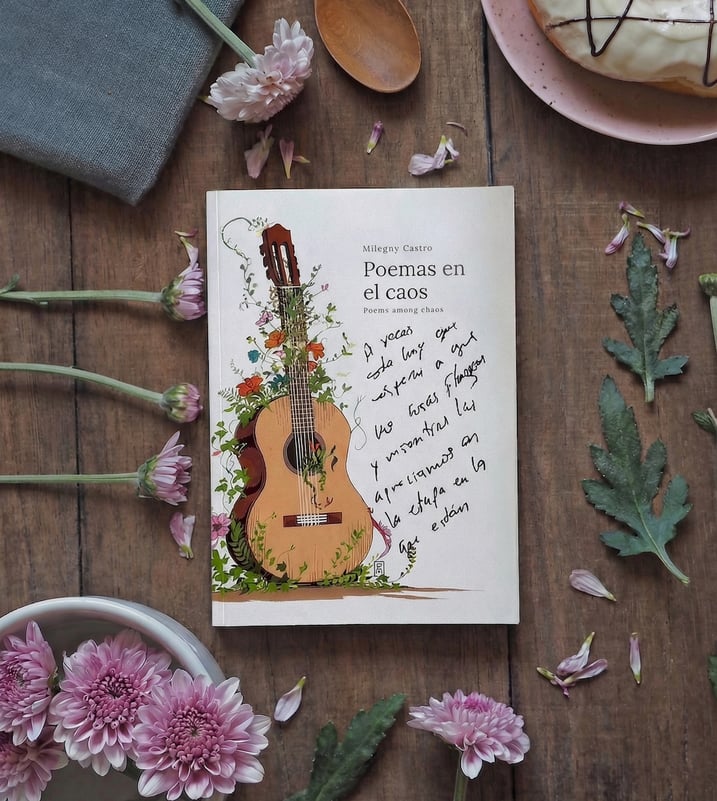 Milegny Castro
Poemas en
el caos
Poems among chaos
A veces
solo hay que
esperar a que
las cosas florezcan
y mientras las
apreciamos en
la etapa en la
que están